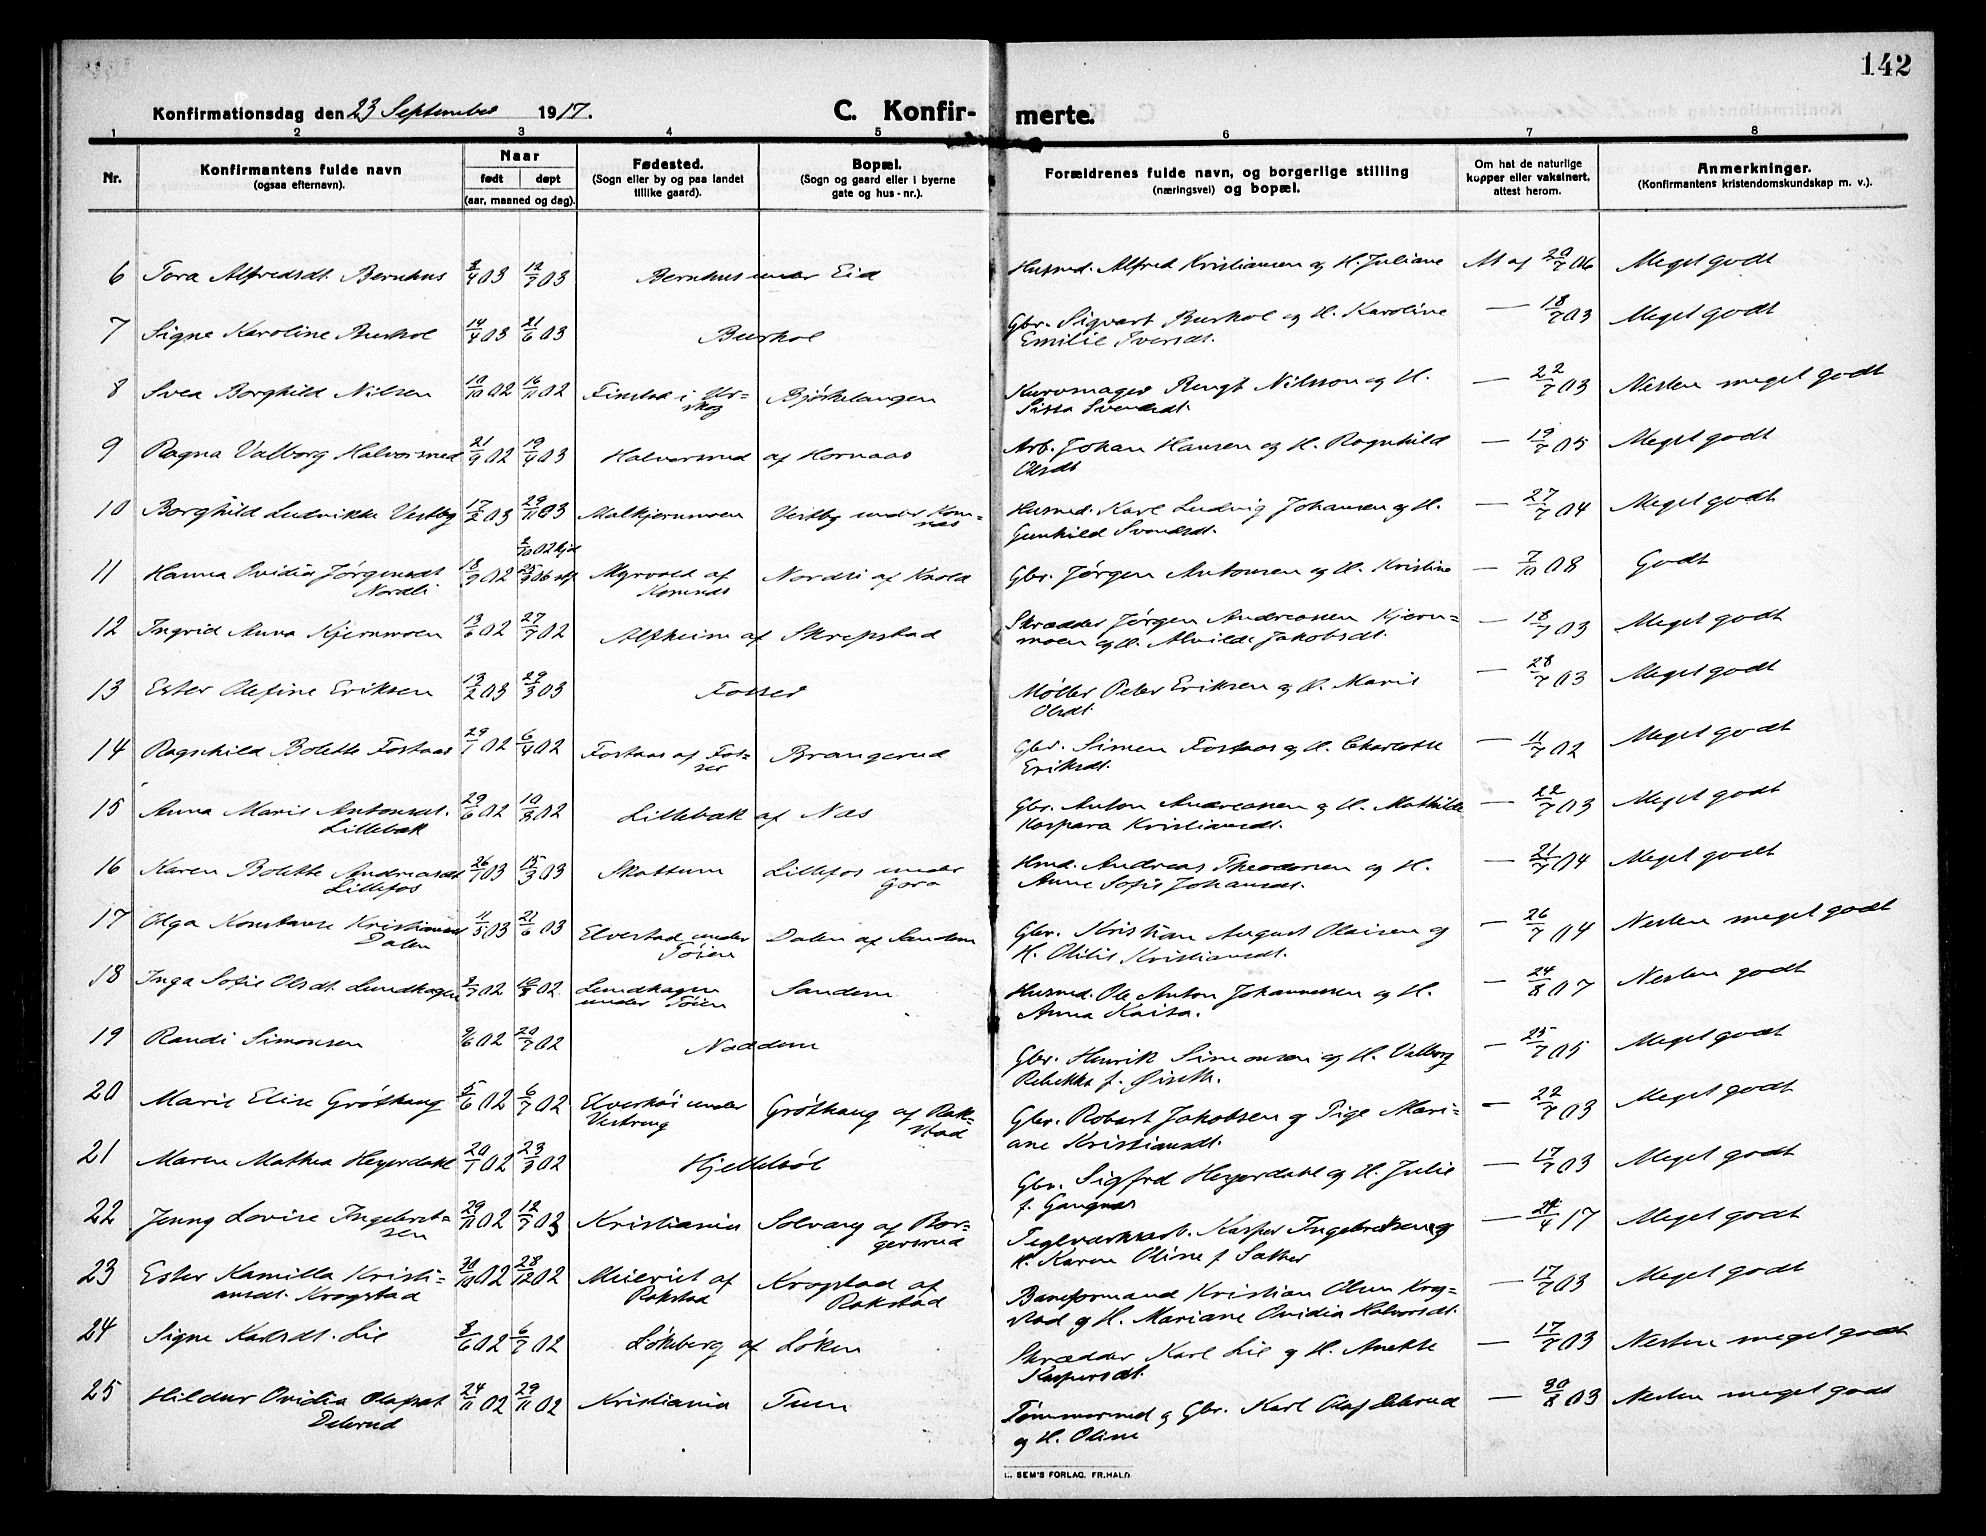 142
Konfirmationsdag den 23 September 1917.
C. Konfirmerte.
1 2 3 4 5 6 7 8
Nr.
Konfirmantens fulde navn
(ogsaa efternavn).
Naar
født døpt
(aar, maaned og dag).
Fødested.
(Sogn eller by og paa landet
tillike gaard).
Bopæl.
(Sogn og gaard eller i byerne
gate og hus-nr.).
Forældrenes fulde navn, og borgerlige stilling
(næringsvei) og bopæl.
Om hat de naturlige
kopper eller vaksinert,
attest herom.
Anmerkninger.
(Konfirmantens kristendomskundskap m. v.).
6 Tora Alfredsdt. Bernhus 3/4 03 12/7 03 Bernhus under Eid Husmd. Alfred Kristiansen og H. Juliane At af 20/7 06 Meget godt
7 Signe Karoline Burhol 14/4 03 21/6 03 Burhol Gbr. Sigvart Burhol og H. Karoline — 18/7 03 Meget godt
Emilie Iversdt.
8 Svea Borghild Nilsen 10/10 02 16/11 02 Finstad i Ur- Bjørkelangen Kurvmager Bengt Nilsson og H. — 22/7 03 Nesten meget godt
skog Sissa Svendsdt.
9 Ragna Valborg Halvorsmed 21/9 02 19/4 03 Halvorsmed af Hornaas Arb. Johan Hansen og H. Ragnhild — 19/7 05 Meget godt
Olsdt
10 Borghild Ludvikke Vestby 17/2 03 29/11 03 Malkjernmoen Vestby under Kom- Husmd. Karl Ludvig Johansen og H. — 27/7 04 Meget godt
næs Gunhild Svendsdt.
11 Hanna Ovidia Jørgensdt 18/9 02 Myrvold af Nordli af Knold Gbr. Jørgen Antonsen og H. Kristine — 7/10 08 Godt
Nordli Komnæs
12 Ingrid Anna Kjernmoen 13/6 02 27/7 02 Alfheim af Skrepstad Skrædder Jørgen Andreassen Kjern- — 18/7 03 Meget godt
moen og H. Alvilde Jakobsdt.
13 Ester Olefine Eriksen 13/2 03 29/3 03 Fosser Møller Peter Eriksen og H. Marie — 28/7 03 Meget godt
Olsdt.
14 Ragnhild Bolette Fostaas 29/1 02 6/4 02 Fostaas af Fos- Brangerud Gbr. Simen Fostaas og H. Charlotte — 11/7 02 Meget godt
ser Eriksdt.
15 Anna Marie Antonsdt. 29/6 02 10/8 02 Lillebæk af Næs Gbr. Anton Andreassen og H. Mathilde — 22/7 03 Meget godt
Lillebæk Kaspara Kristiansdt.
16 Karen Bolette Andreasdt 26/1 03 15/3 03 Skattum Lillefos under Hmd. Andreas Theodorsen og H. — 21/7 04 Meget godt
Lillefos Gara Anne Sofie Johansdt.
17 Olga Konstanse Kristiansdt 11/5 03 21/6 03 Elvestad under Dalen af Sandem Gbr. Kristian August Olaisen og — 26/7 04 Nesten meget godt
Dalen Tøien H. Otilie Kristiansdt.
18 Inga Sofie Olsdt. Lundhagen 02 02 Lundhagen Sandem Husmd. Ole Anton Johannessen og H. — 24/8 07 Nesten godt
under Tøien Anna Kaisa.
19 Randi Simonsen 9/6 02 20/7 02 Naddum Gbr. Henrik Simonsen og H. Valborg — 25/7 05 Meget godt
Rebekka f. Øiseth.
20 Marie Elise Grøthaug 5/6 02 6/7 02 Elverhøi under Grøthaug af Rak- Gbr. Robert Jakobsen og Pige Mari- — 22/7 03 Meget godt
Vestreng stad ane Kristiansdt.
21 Maren Mathea Heyerdahl 20/1 02 23/3 02 Hjellebøl Gbr. Sigfred Heyerdahl og H. Julie — 17/7 03 Meget godt
f. Gangnæs
22 Jenny Lovise Ingebret- 29/11 02 12/7 03 Kristiania Solvang af Bor- Teglverksarb. Kasper Ingebretsen og — 24/4 17 Meget godt
sen gersrud H. Karen Oline f. Sæther
23 Ester Kamilla Kristi- 30/10 02 28/12 02 Meieriet af Krogstad af Baneformand Kristian Olsen Krog- — 17/7 03 Meget godt
ansdt. Krogstad Rakstad Rakstad stad og H. Mariane Ovidia Halvorsdt.
24 Signe Karlsdt. Lie 3/6 02 6/7 02 Løkeberg af Løken Skrædder Karl Lie og H. Anette — 17/7 03 Nesten meget godt
Kaspersdt.
25 Hildur Ovidia Olafsdt 24/11 02 29/11 02 Kristiania Tun Tømmermd og Gbr. Karl Olaf Delerud — 20/8 03 Nesten meget godt
Delerud og H. Oline
SEM'S FORLAG. FR.HALD.